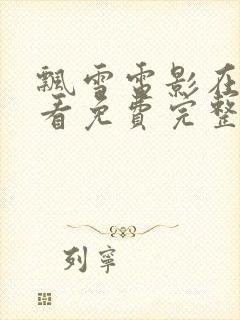 飘雪雷影在
看免费完整
列宁